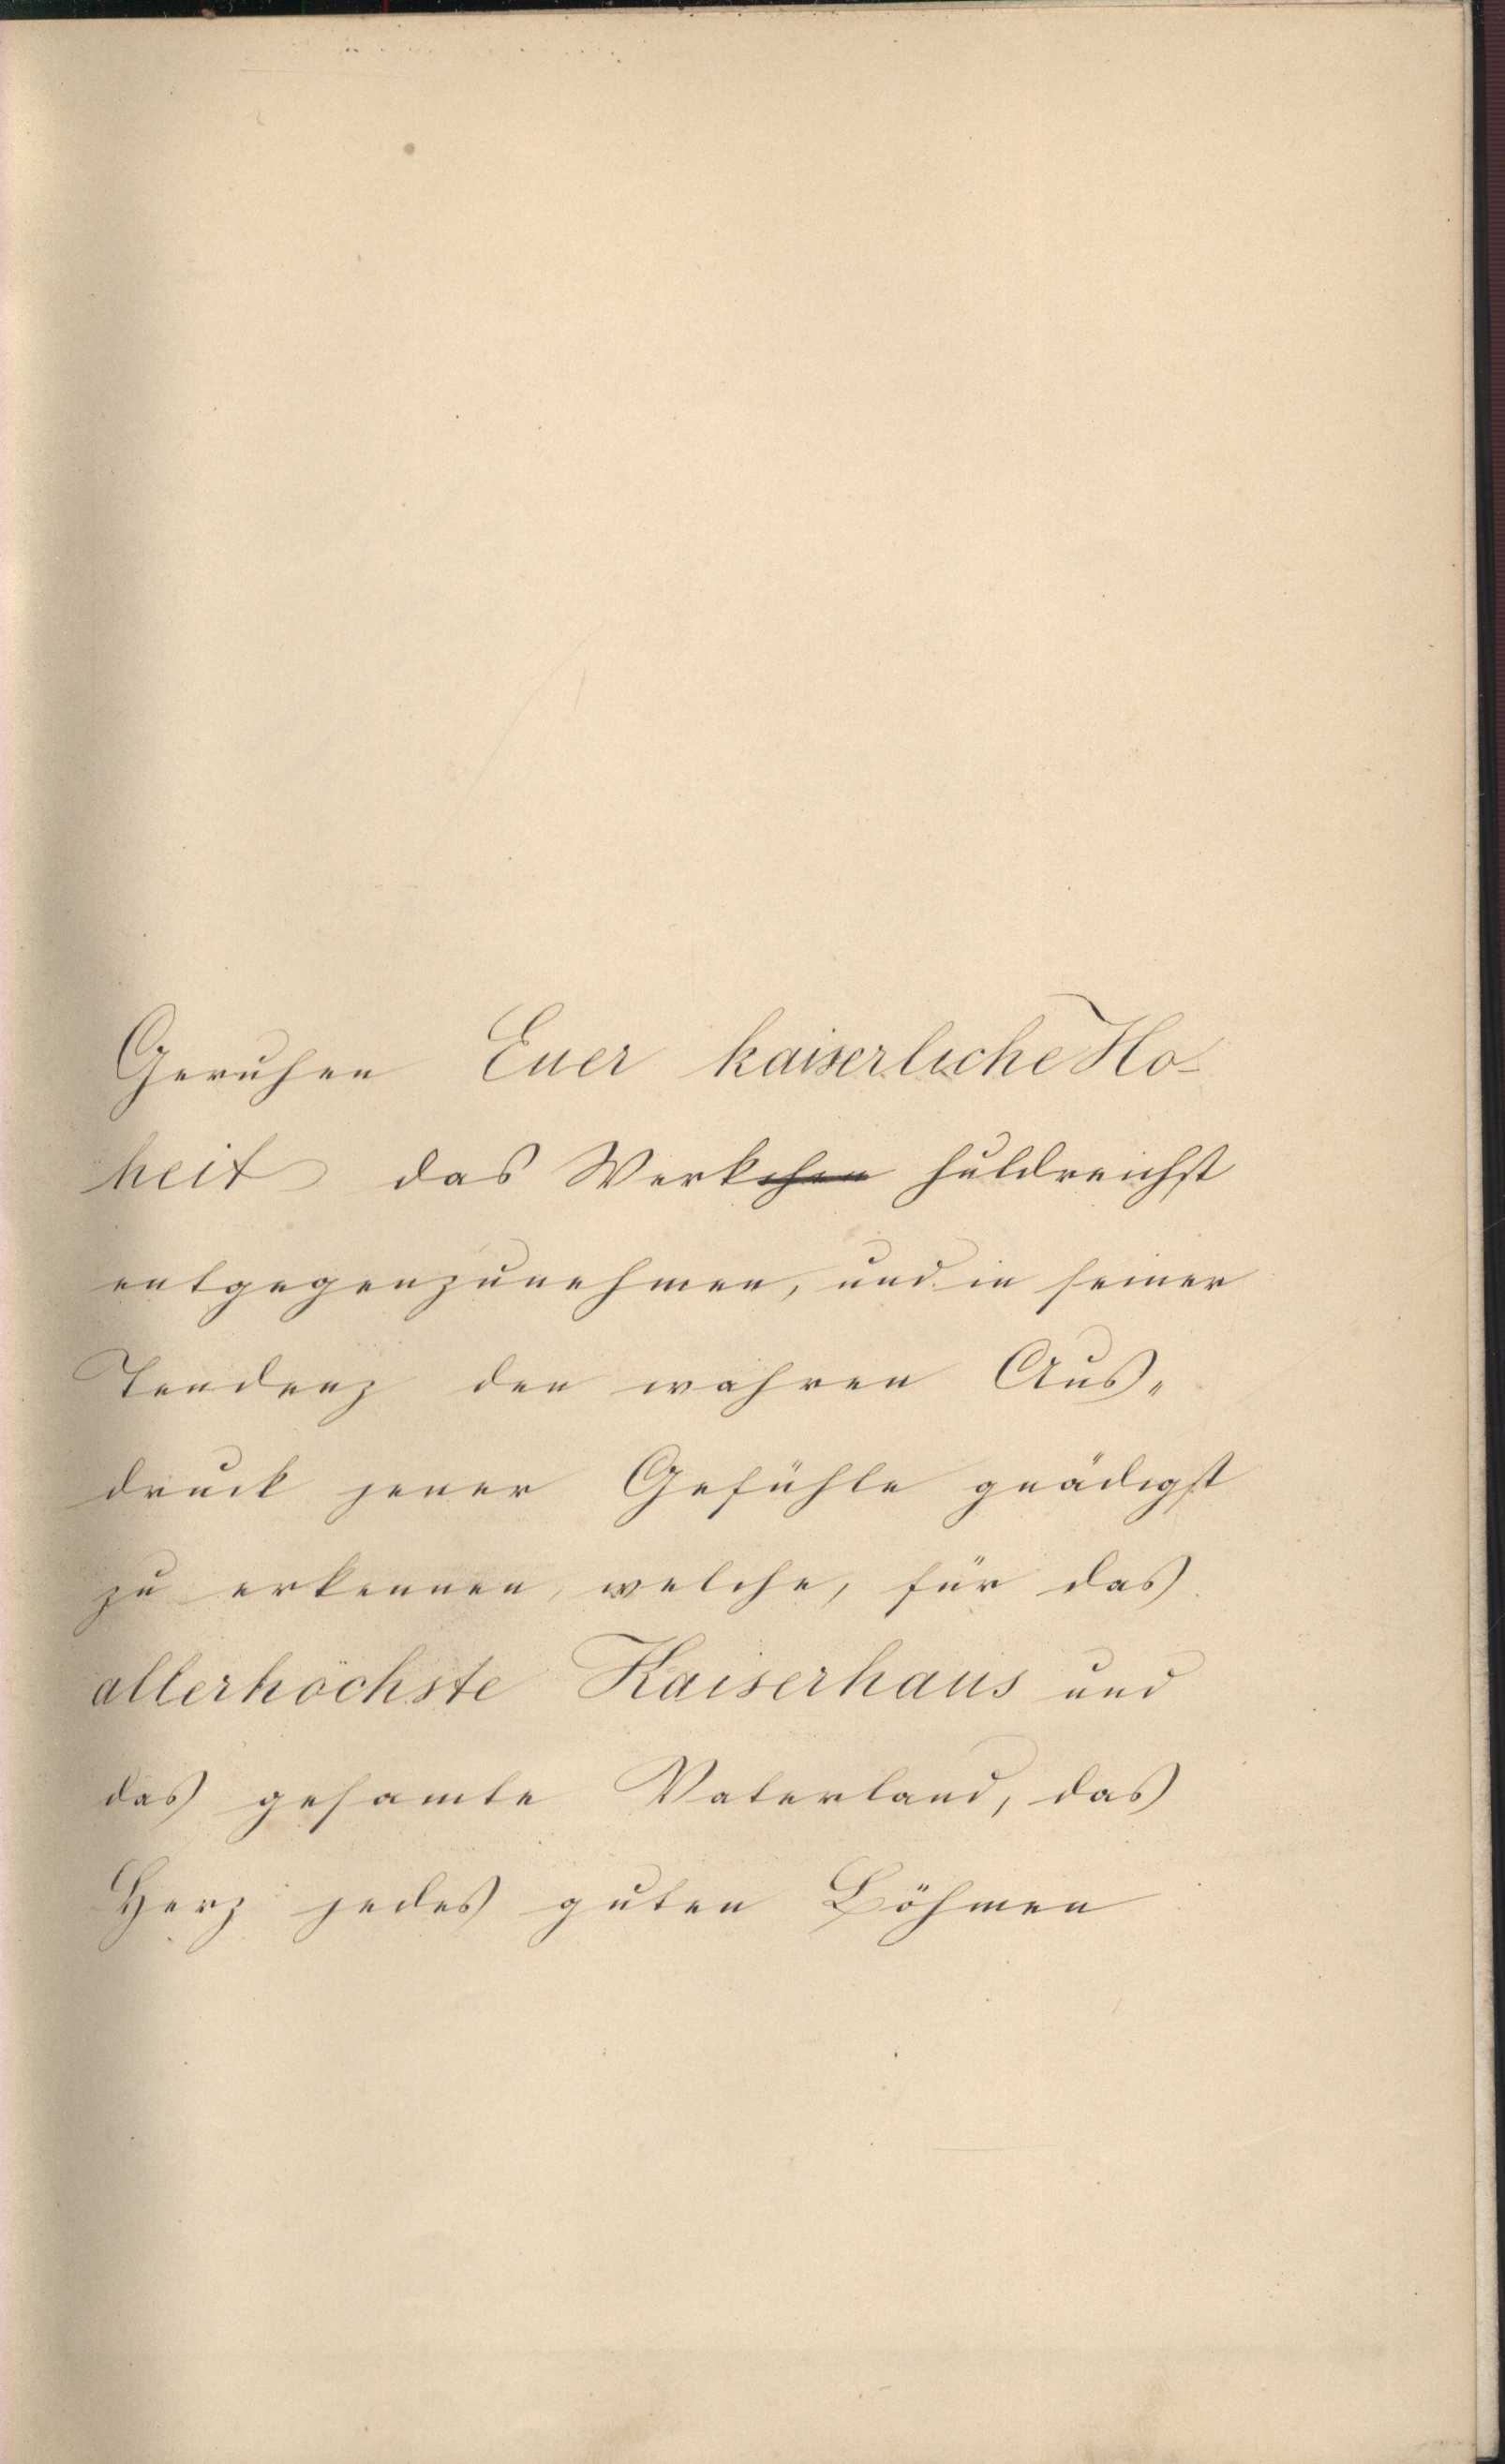 Geruhen Euer kaiserliche Ho-
heit das Werkchen huldreichst
entgegenzunehmen, und in seiner
Tendenz den wahren Aus„
druck jener Gefühle gnädigst
zu erkennen, welche, für das
allerhöchste Kaiserhaus und
das gesamte Vaterland, das
Herz jedes guten Böhmen